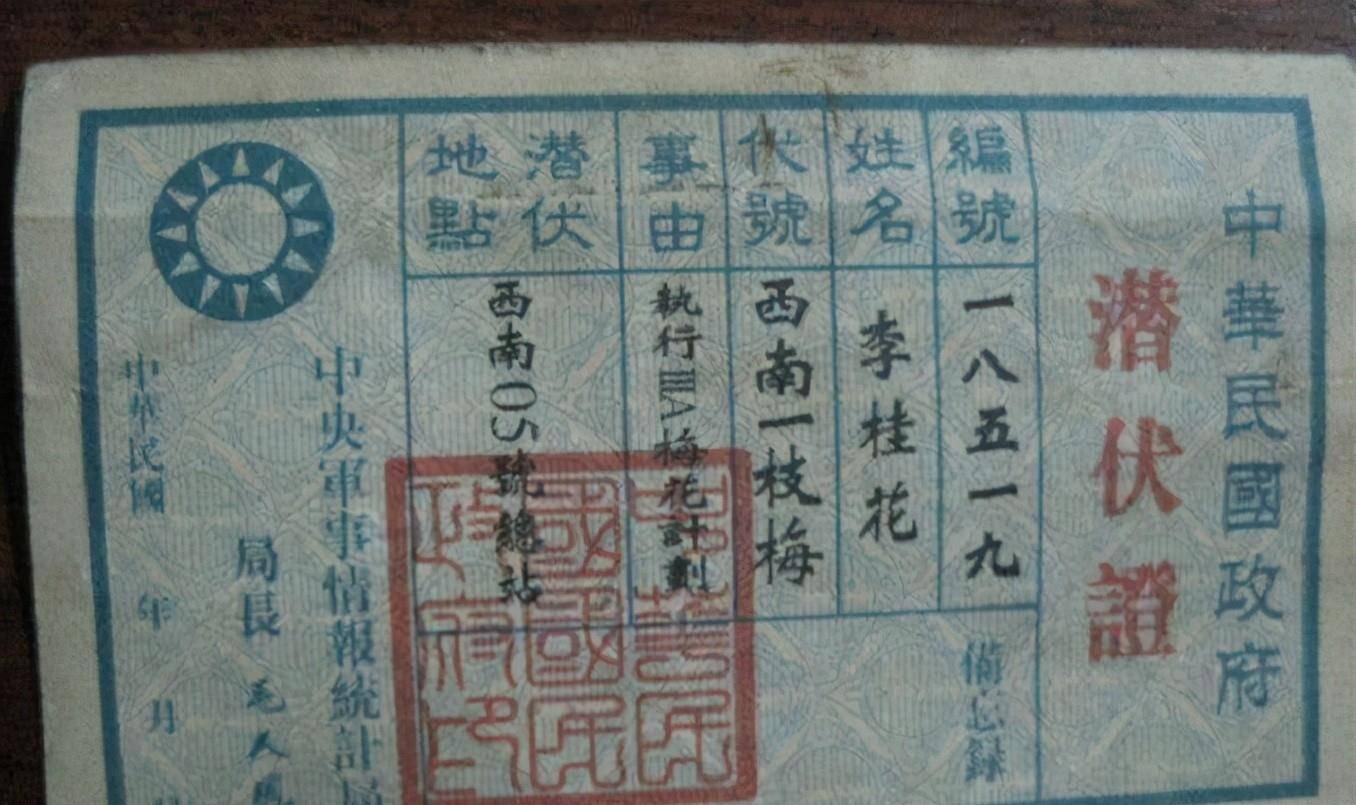 中華民國政府
潛伏證
編號
一八五一九
姓名
李桂花
伏號
西南一枝梅
事由
執行IIIA梅花計劃
潛伏地點
西南105號總站
備忘錄
中央軍事情報統計局
局長 毛人鳳
中華民國 年 月